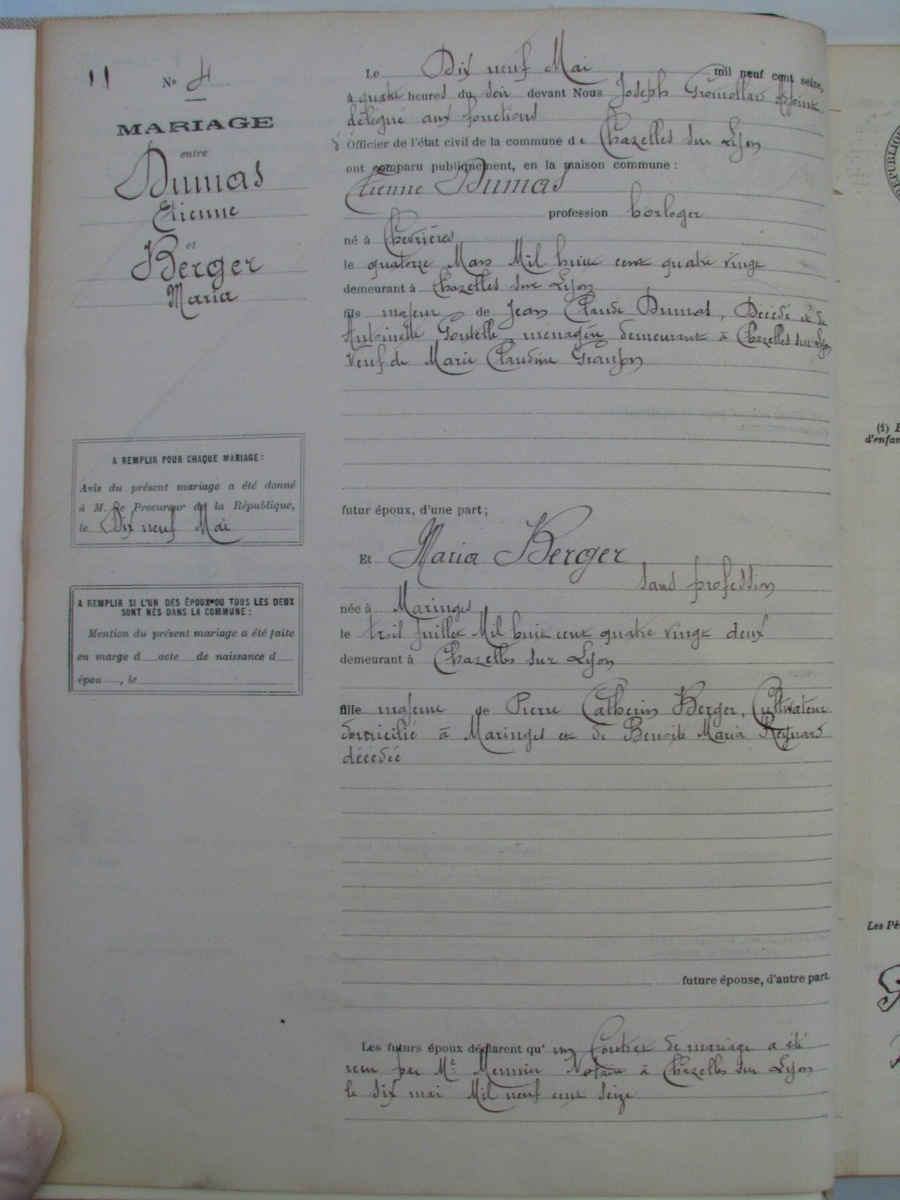 11
N° 4
MARIAGE
entre
Dumas
Etienne
et
Berger
Maria
A REMPLIR POUR CHAQUE MARIAGE :
Avis du présent mariage a été donné
à M. le Procureur de la République,
le Dix neuf Mai
A REMPLIR SI L'UN DES ÉPOUX OU TOUS LES DEUX
SONT NÉS DANS LA COMMUNE :
Mention du présent mariage a été faite
en marge d acte de naissance d
épou , le
Le Dix neuf Mai mil neuf cent seize,
à quatre heures du soir devant Nous Joseph Adjoint
délégué aux fonctions
d' Officier de l'état civil de la commune de Chazelles sur Lyon
ont comparu publiquement, en la maison commune :
Etienne Dumas
profession horloger
né à Chevrières
le quatorze Mars Mil huit cent quatre vingt
demeurant à Chazelles sur Lyon
fils majeur de Jean Claude Dumas, Décédé et de
Antoinette ménagère demeurant à Chazelles sur Lyon
Veuf de Marie Claudine Granjon
futur époux, d'une part ;
Et Maria Berger
sans profession
née à Maringes
le trois Juillet Mil huit cent quatre vingt deux
demeurant à Chazelles sur Lyon
fille majeure de Pierre Catherin Berger, Cultivateur
domicilié à Maringes et de Benoite Maria
décédée
future épouse, d'autre part.
Les futurs époux déclarent qu' un Contrat de mariage a été
recu par Me Notaire à Chazelles sur Lyon
le six mai Mil neuf cent seize
(1)
d'enfan
Les Pè